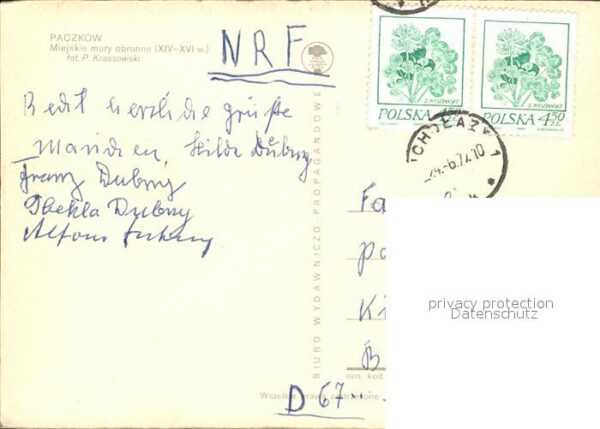 PACZKÓW
Miejskie mury obronne (XIV-XVI w.)
fot. P. Krassowski
NRF
POLSKA
POLSKA 4,50 ZŁ
S. WYSPIAŃSKI
24.-6.74.10
herzliche grüße
Hilde Dubny
Franz Dubny
Thekla Dubny
Alfons
BIURO WYDAWNICZO-PROPAGANDOWE
Fa
Ki
B
ozn. kod
Wszelkie prawa zastrzeżone
D 67
privacy protection
Datenschutz